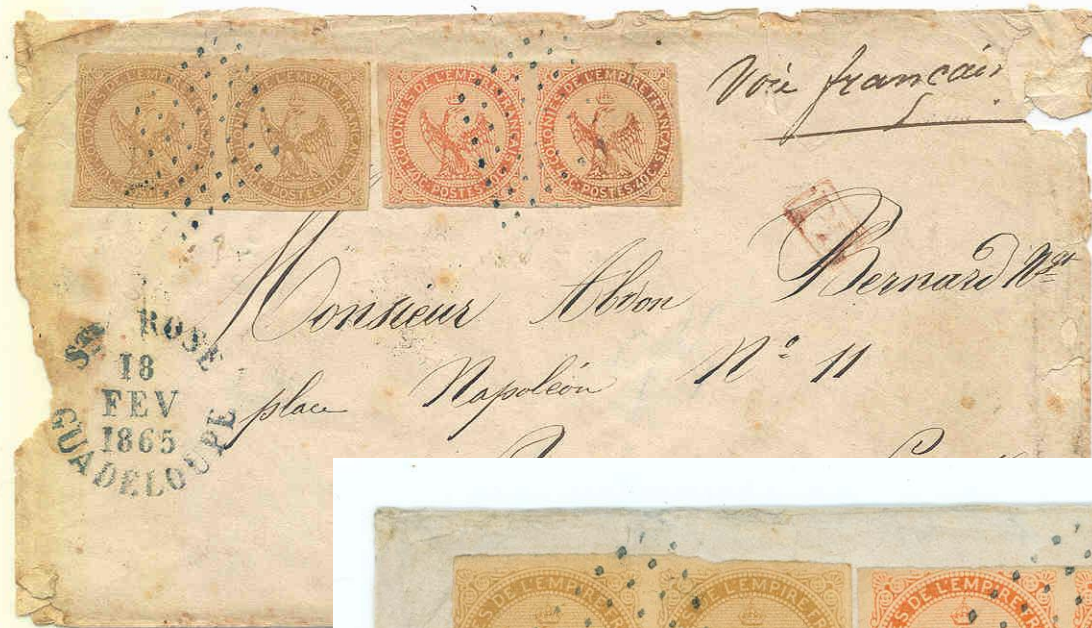 COLONIES DE L'EMPIRE FRANÇAIS
10C. POSTES. 10C.
COLONIES DE L'EMPIRE FRANÇAIS
10C. POSTES. 10C.
COLONIES DE L'EMPIRE FRANÇAIS
40C. POSTES. 40C.
COLONIES DE L'EMPIRE FRANÇAIS
40C. POSTES. 40C.
Voie français
Monsieur Abdon Bernard Ngt
place Napoléon N° 11
STE ROSE
18
FEV
1865
GUADELOUPE
ES DE L'EMPIRE FR
S DE L'EMPIRE F
ES DE L'EMPIRE FR